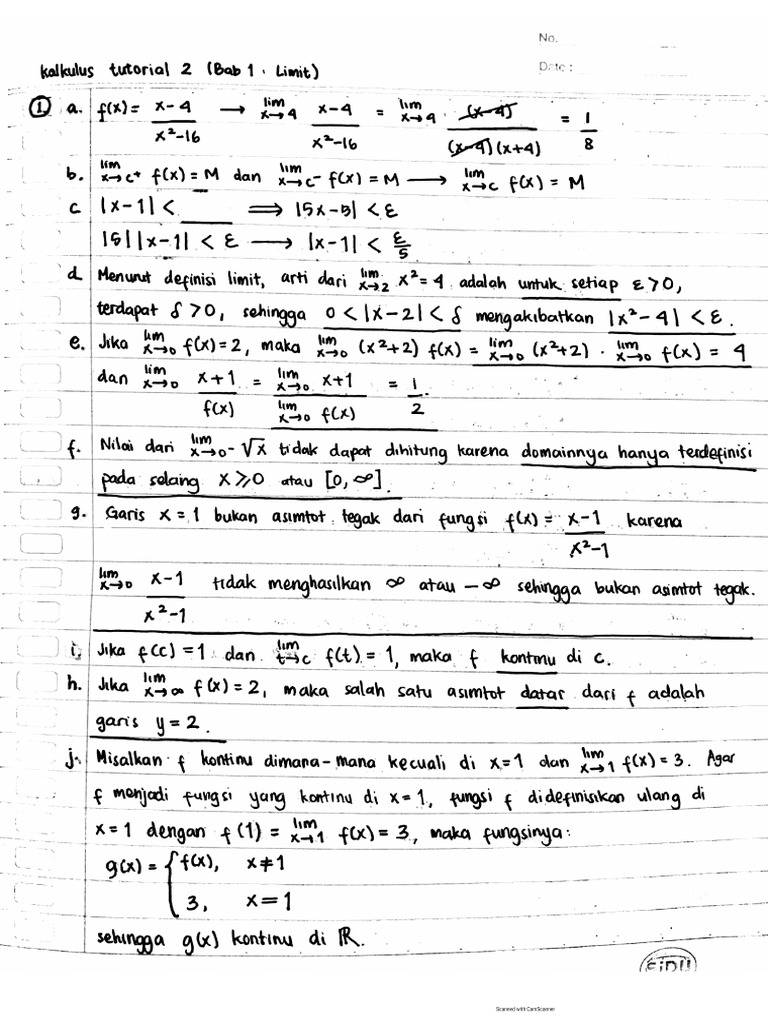 No.
Date :
Kalkulus tutorial 2 (Bab 1 . Limit)
① a. f(x) = x-4 / x²-16 → lim x→4 x-4 / x²-16 = lim x→4 (x-4) / (x-4)(x+4) = 1/8
b. lim x→c⁺ f(x) = M dan lim x→c⁻ f(x) = M → lim x→c f(x) = M
c |x-1| < ___ ⟹ |5x-5| < ε
|5||x-1| < ε → |x-1| < ε/5
d Menurut definisi limit, arti dari lim x→2 x² = 4 adalah untuk setiap ε > 0,
terdapat δ > 0, sehingga 0 < |x-2| < δ mengakibatkan |x²-4| < ε.
e. Jika lim x→0 f(x) = 2, maka lim x→0 (x²+2) f(x) = lim x→0 (x²+2) . lim x→0 f(x) = 4
dan lim x→0 x+1 / f(x) = lim x→0 x+1 / lim x→0 f(x) = 1/2
f. Nilai dari lim x→0⁻ √x tidak dapat dihitung karena domainnya hanya terdefinisi
pada selang x ≥ 0 atau [0, ∞].
g. Garis x = 1 bukan asimtot tegak dari fungsi f(x) = x-1 / x²-1 karena
lim x→0 x-1 / x²-1 tidak menghasilkan ∞ atau -∞ sehingga bukan asimtot tegak.
i. Jika f(c) = 1 dan lim t→c f(t) = 1, maka f kontinu di c.
h. Jika lim x→∞ f(x) = 2, maka salah satu asimtot datar dari f adalah
garis y = 2.
j. Misalkan f kontinu dimana-mana kecuali di x = 1 dan lim x→1 f(x) = 3. Agar
f menjadi fungsi yang kontinu di x = 1, fungsi f didefinisikan ulang di
x = 1 dengan f(1) = lim x→1 f(x) = 3, maka fungsinya:
g(x) = { f(x), x ≠ 1
3, x = 1
sehingga g(x) kontinu di ℝ.
SiDU
Scanned with CamScanner